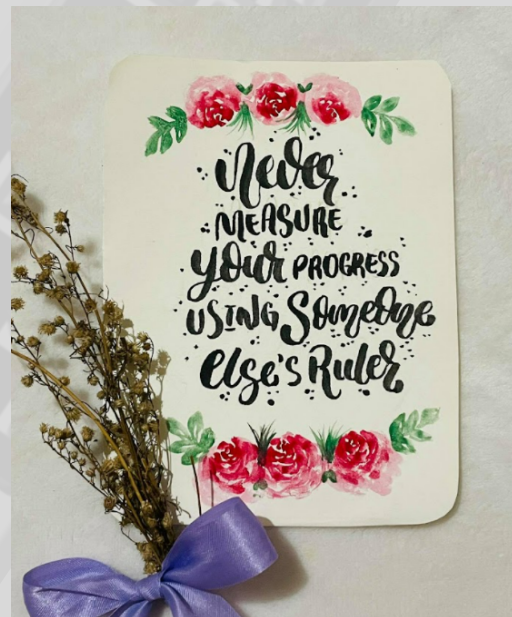 Never
MEASURE
your PROGRESS
USING Someone
else's Ruler